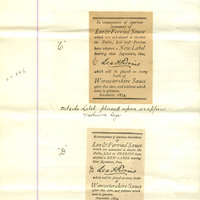 "C"
In consequence of spurious
imitations of
Lea & Perrins' Sauce
which are calculated to deceive
the Public, Lea and Perrins
have adopted a New Label
bearing their Signature, thus,
Lea & Perrins
which will be placed on every
bottle of
Worcestershire Sauce
after this date, and without which
none is genuine.
November, 1874.
outside Label placed upon wrapper
"D"
In consequence of spurious imitations
of
Lea & Perrins' Sauce
which are calculated to deceive the
Public, Lea and Perrins have
adopted a New Label bearing
their Signature, thus,
Lea & Perrins
which will be placed on every bottle of
Worcestershire Sauce
after this date, and without which
none is genuine.
November, 1874.